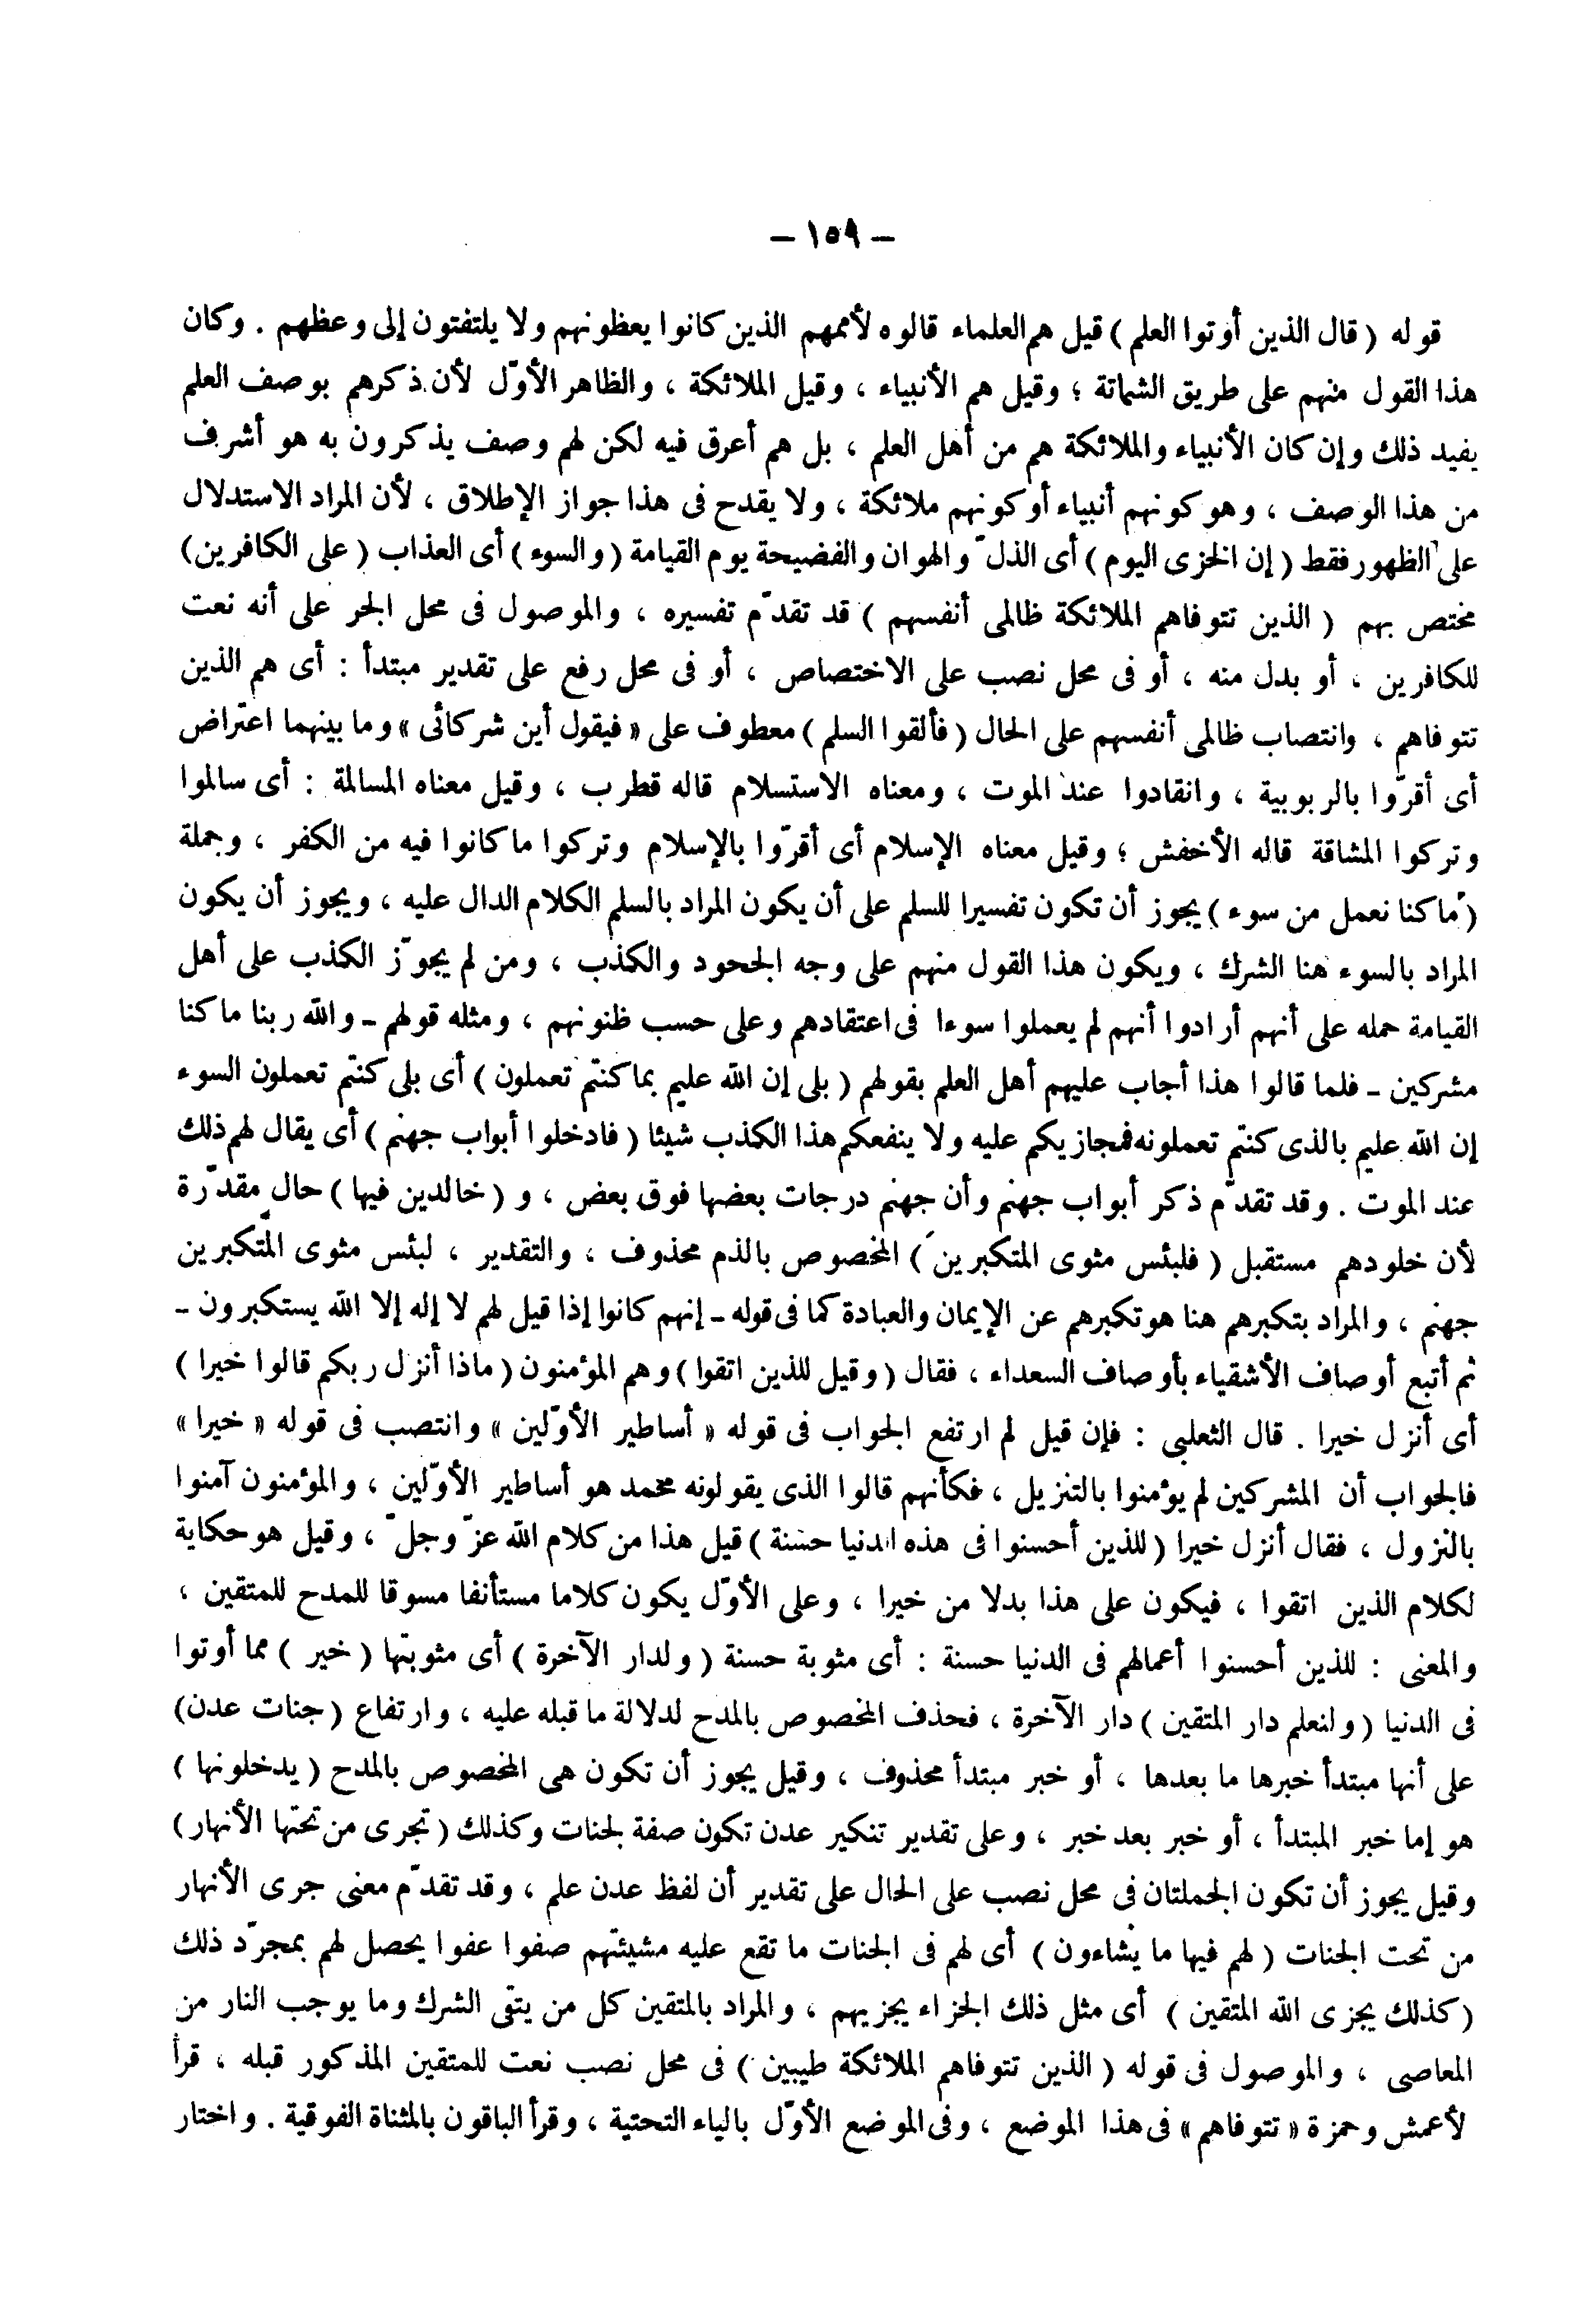 – ١٥٩ –
قوله ( قال الذين أوتوا العلم ) قيل هم العلماء قالوه لأممهم الذين كانوا يعظونهم ولا يلتفتون إلى وعظهم . وكان
هذا القول منهم على طريق الشماتة ؛ وقيل هم الأنبياء ، وقيل الملائكة ، والظاهر الأوّل لأن ذكرهم بوصف العلم
يفيد ذلك وإن كان الأنبياء والملائكة هم من أهل العلم ، بل هم أعرق فيه لكن لهم وصف يذكرون به هو أشرف
من هذا الوصف ، وهو كونهم أنبياء أو كونهم ملائكة ، ولا يقدح فى هذا جواز الإطلاق ، لأن المراد الاستدلال
على الظهور فقط ( إن الخزى اليوم ) أى الذلّ والهوان والفضيحة يوم القيامة ( والسوء ) أى العذاب ( على الكافرين )
مختص بهم ( الذين تتوفاهم الملائكة ظالمى أنفسهم ) قد تقدّم تفسيره ، والموصول فى محل الجر على أنه نعت
للكافرين ، أو بدل منه ، أو فى محل نصب على الاختصاص ، أو فى محل رفع على تقدير مبتدأ : أى هم الذين
تتوفاهم ، وانتصاب ظالمى أنفسهم على الحال ( فألقوا السلم ) معطوف على « فيقول أين شركائى » وما بينهما اعتراض
أى أقرّوا بالربوبية ، وانقادوا عند الموت ، ومعناه الاستسلام قاله قطرب ، وقيل معناه المسالمة : أى سالموا
وتركوا المشاقة قاله الأخفش ؛ وقيل معناه الإسلام أى أقرّوا بالإسلام وتركوا ما كانوا فيه من الكفر ، وجملة
( ما كنا نعمل من سوء ) يجوز أن تكون تفسيرا للسلم على أن يكون المراد بالسلم الكلام الدال عليه ، ويجوز أن يكون
المراد بالسوء هنا الشرك ، ويكون هذا القول منهم على وجه الجحود والكذب ، ومن لم يجوّز الكذب على أهل
القيامة حمله على أنهم أرادوا أنهم لم يعملوا سوءا فى اعتقادهم وعلى حسب ظنونهم ، ومثله قولهم – والله ربنا ما كنا
مشركين – فلما قالوا هذا أجاب عليهم أهل العلم بقولهم ( بلى إن الله عليم بما كنتم تعملون ) أى بلى كنتم تعملون السوء
إن الله عليم بالذى كنتم تعملونه فمجازيكم عليه ولا ينفعكم هذا الكذب شيئا ( فادخلوا أبواب جهنم ) أى يقال لهم ذلك
عند الموت . وقد تقدّم ذكر أبواب جهنم وأن جهنم درجات بعضها فوق بعض ، و ( خالدين فيها ) حال مقدّرة
لأن خلودهم مستقبل ( فلبئس مثوى المتكبرين ) المخصوص بالذم محذوف ، والتقدير ، لبئس مثوى المتكبرين
جهنم ، والمراد بتكبرهم هنا هو تكبرهم عن الإيمان والعبادة كما فى قوله – إنهم كانوا إذا قيل لهم لا إله إلا الله يستكبرون –
ثم أتبع أوصاف الأشقياء بأوصاف السعداء ، فقال ( وقيل للذين اتقوا ) وهم المؤمنون ( ماذا أنزل ربكم قالوا خيرا )
أى أنزل خيرا . قال الثعلبى : فإن قيل لم ارتفع الجواب فى قوله « أساطير الأوّلين » وانتصب فى قوله « خيرا »
فالجواب أن المشركين لم يؤمنوا بالتنزيل ، فكأنهم قالوا الذى يقولونه محمد هو أساطير الأوّلين ، والمؤمنون آمنوا
بالنزول ، فقال أنزل خيرا ( للذين أحسنوا فى هذه الدنيا حسنة ) قيل هذا من كلام الله عزّ وجلّ ، وقيل هو حكاية
لكلام الذين اتقوا ، فيكون على هذا بدلا من خيرا ، وعلى الأوّل يكون كلاما مستأنفا مسوقا للمدح للمتقين ،
والمعنى : للذين أحسنوا أعمالهم فى الدنيا حسنة : أى مثوبة حسنة ( ولدار الآخرة ) أى مثوبتها ( خير ) مما أوتوا
فى الدنيا ( ولنعلم دار المتقين ) دار الآخرة ، فحذف المخصوص بالمدح لدلالة ما قبله عليه ، وارتفاع ( جنات عدن )
على أنها مبتدأ خبرها ما بعدها ، أو خبر مبتدأ محذوف ، وقيل يجوز أن تكون هى المخصوص بالمدح ( يدخلونها )
هو إما خبر المبتدأ ، أو خبر بعد خبر ، وعلى تقدير تنكير عدن تكون صفة لجنات وكذلك ( تجرى من تحتها الأنهار )
وقيل يجوز أن تكون الجملتان فى محل نصب على الحال على تقدير أن لفظ عدن علم ، وقد تقدّم معنى جرى الأنهار
من تحت الجنات ( لهم فيها ما يشاءون ) أى لهم فى الجنات ما تقع عليه مشيئتهم صفوا عفوا يحصل لهم بمجرّد ذلك
( كذلك يجزى الله المتقين ) أى مثل ذلك الجزاء يجزيهم ، والمراد بالمتقين كل من يتقى الشرك وما يوجب النار من
المعاصى ، والموصول فى قوله ( الذين تتوفاهم الملائكة طيبين ) فى محل نصب نعت للمتقين المذكور قبله ، قرأ
لأعمش وحمزة « تتوفاهم » فى هذا الموضع ، وفى الموضع الأوّل بالياء التحتية ، وقرأ الباقون بالمثناة الفوقية . واختار